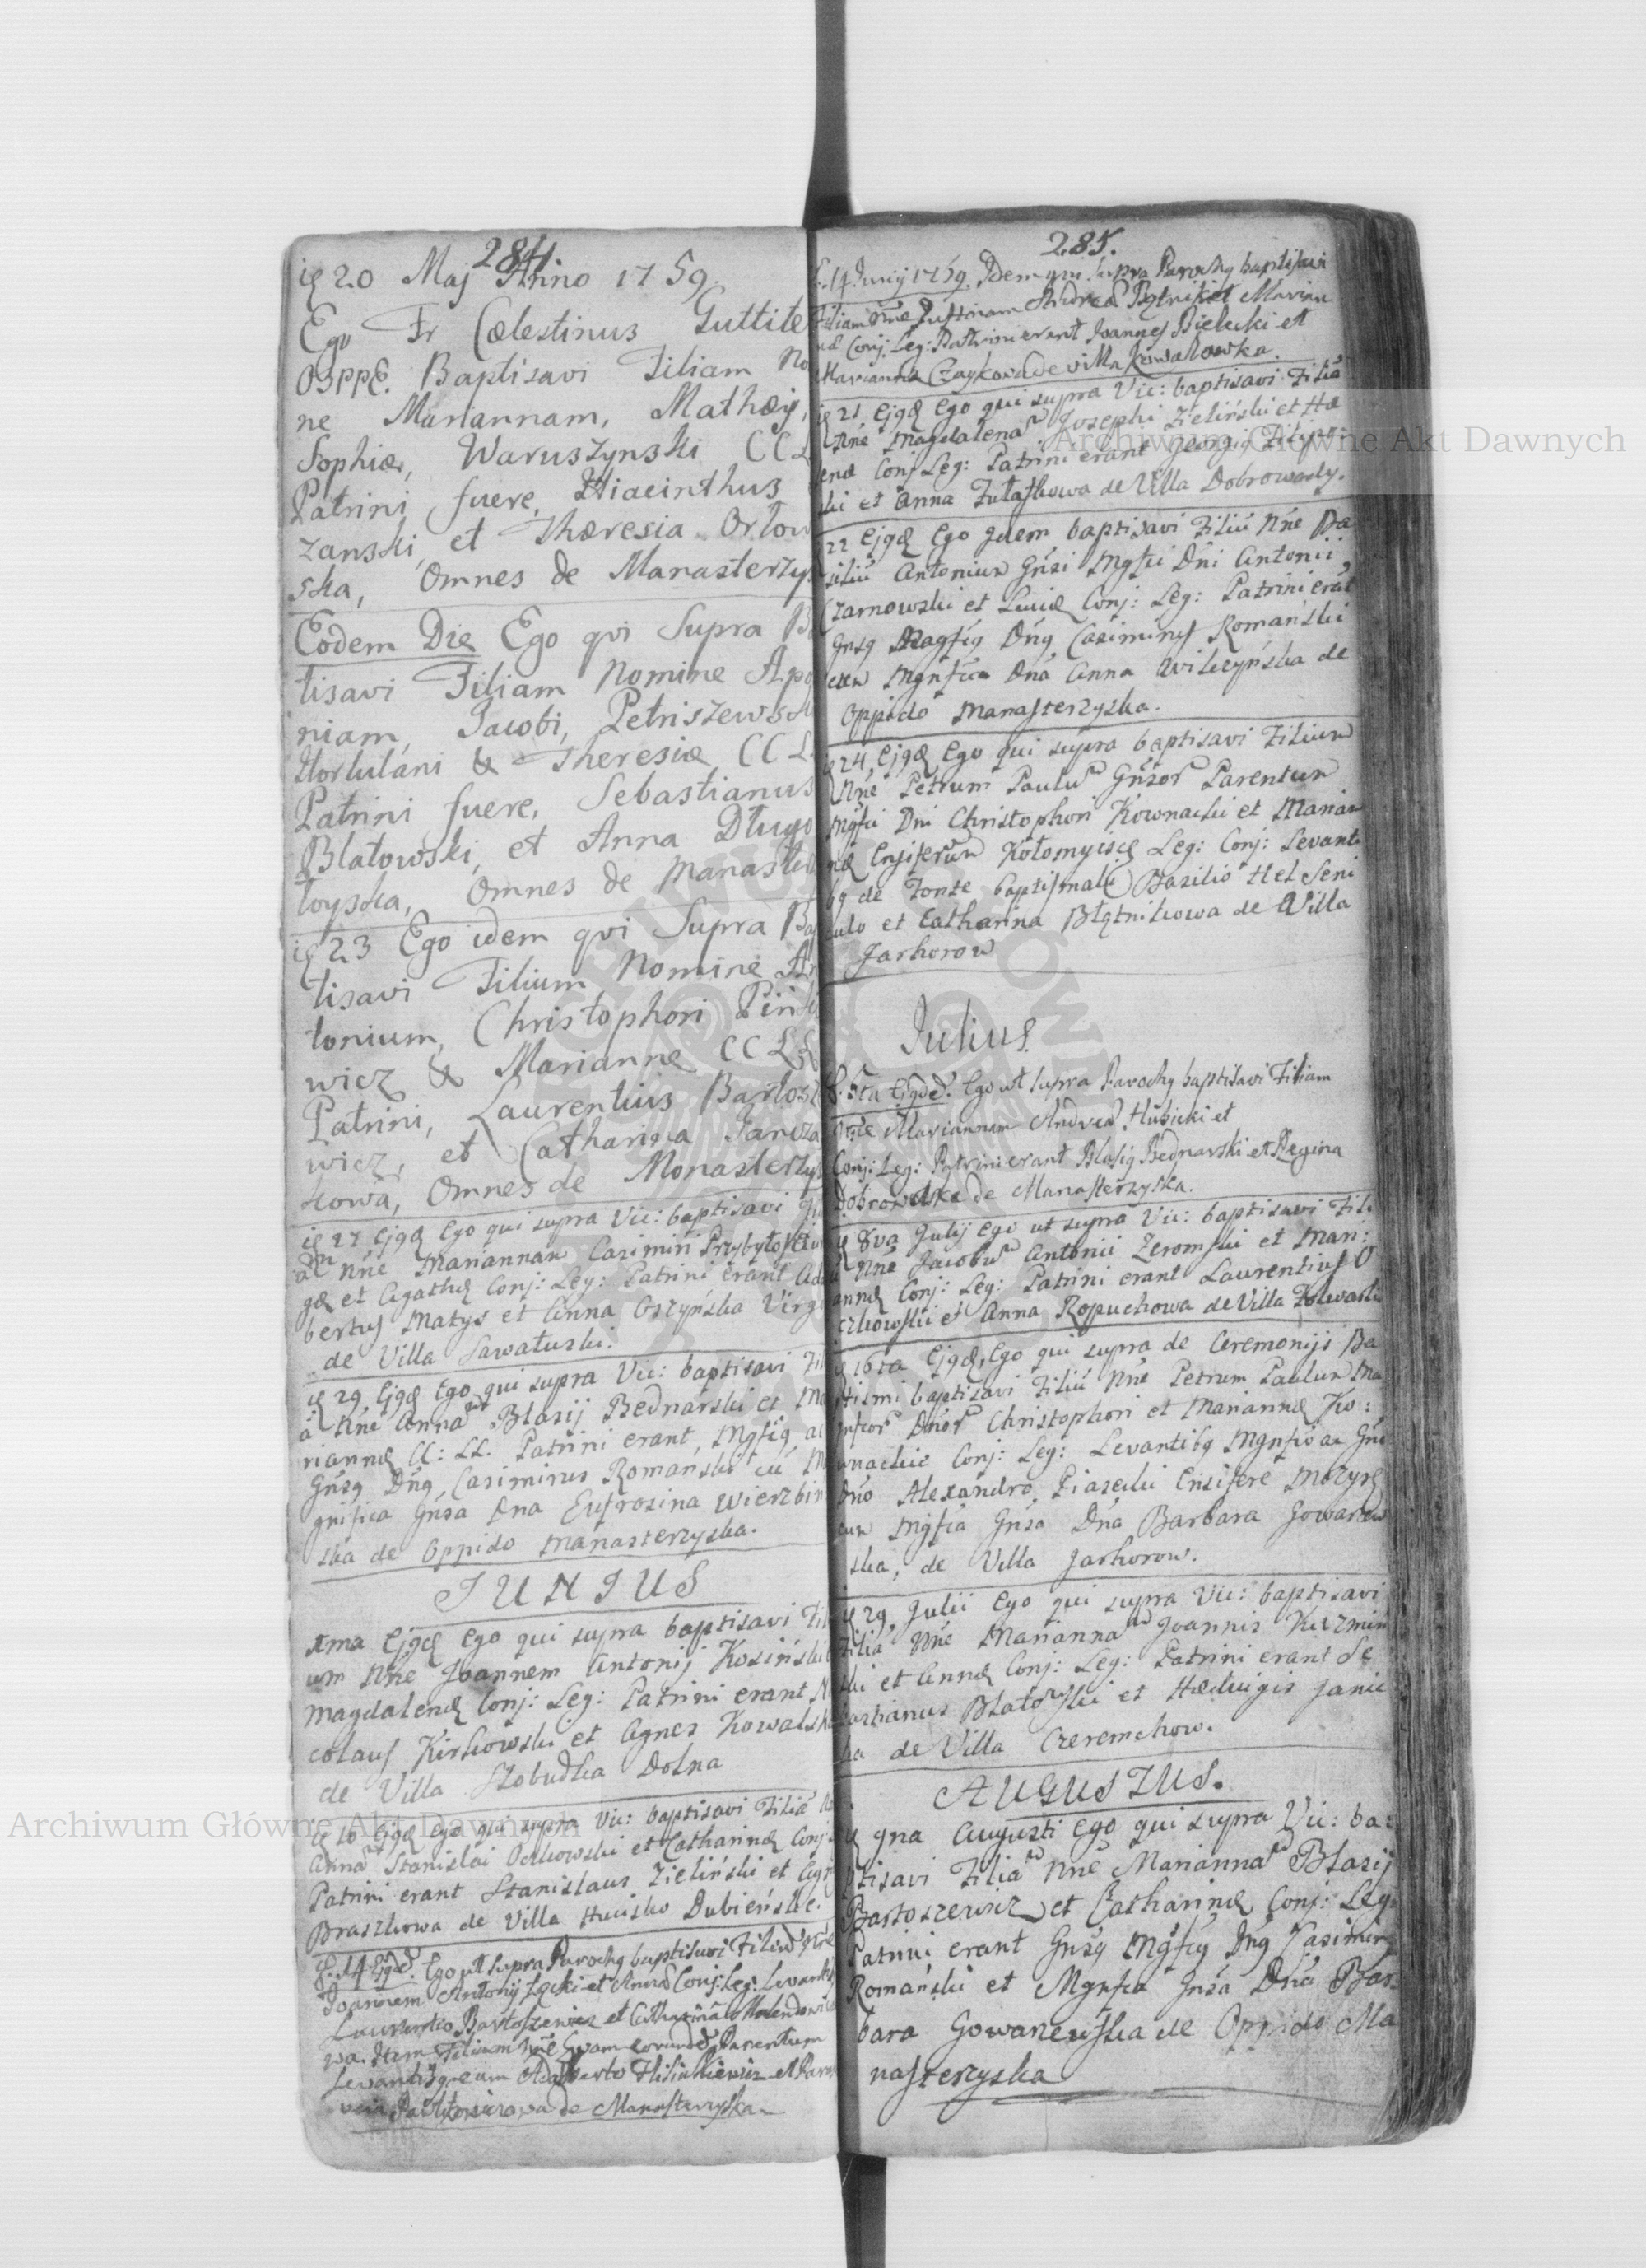 284
ie 20 Maj Anno 1759.
Ego Fr Cælestinus Guttite
OSPPE. Baptisavi Filiam No
ne Mariannam, Mathæi,
Sophiæ, Waruszynski CCL
Patrini fuere, Hiacinthus
zanski, et Theresia Orlow
ska, Omnes de Manasterzys
Eodem Die Ego qvi Supra B
tisavi Filiam Nomine Apo
niam, Jacobi, Petriszewsk
Hortulani & Theresiæ CCL
Patrini fuere, Sebastianus
Blatowski, et Anna Długo
toyska, Omnes de Manaste
ie 23 Ego idem qvi Supra Ba
tisavi Filium Nomine An
tonium, Christophori Pin
wicz & Marianne CCLL
Patrini, Laurentius Bartosz
wicz, et Catharina Jarcza
kowa, Omnes de Monasterzys
ie 27 Ejqd Ego qui supra Vic: baptisavi
Nne Mariannam Casimiri
et Agathæ Conj: Leg: Patrini erant Ada
bertus Matys et Anna Oszyńska Virgo
de Villa Sawałuski.
ie 29 Ejqd Ego qui supra Vic: baptisavi Fil
a Nne Anna Blasij Bednarski et Ma
riannæ CC: LL. Patrini erant, Mgfiq ac
Gnsq Dnq, Casimirus Romanski cu M
gnifica Gnsa Dna Eufrosina Wierzbin
ska de Oppido Manasterzyska.
JUNIUS
1ma Ejqd Ego qui supra baptisavi Fil
um Nne Joannem Antonij Kosiński
Magdalenæ Conj: Leg: Patrini erant Ni
colaus Kirkowski et Agnes Kowalska
de Villa Słobudka Dolna
ie 10 Ejqd Ego qui supra Vic: baptisavi Filia
Anna Stanislai Ockowski et Catharinæ Conj:
Patrini erant Stanislaus Zieliński et Agn
Braszkowa de Villa Huisko Dubieńskie.
14 Ejqd. Ego ut supra Parochq baptisavi Filiu Nne
Joannem Antonij Łącki et Annæ Conj: Leg: Levantib
Laurentio Bartoszewicz et Catharina
wa. Item Filium Nne Evam eorund Parentum
Levantibq eum Adalberto
de Manasterzyska.
285.
14 Junij 1759. Idem qui supra Parochq baptisavi
Filiam Nne Justinam Andreæ et Marian
næ Conj: Leg: Patrini erant Joannes Bielecki et
Marianna Czaykowa de villa Kowalowka.
ie 21 Ejqd Ego qui supra Vic: baptisavi Filia
Nne Magdalena Josephi Zieliński et He
lenæ Conj Leg: Patrini erant Georgiq Filipe
ski et Anna Zułaskowa de Villa Dobrowody.
22 Ejqd Ego Idem baptisavi Filiu Nne Ba
siliu Antonium Gnsi Mgfci Dni Antonii
Czarnowski et Luciæ Conj: Leg: Patrini erat
Gnsq Magfiq Dnq Casimirus Romański
cum Mgnfica Dna Anna Wilczyńska de
Oppido Manasterzyska.
ie 24 Ejqd Ego qui supra baptisavi Filium
Nne Petrum Paulu Gnsor Parentum
Mgfci Dni Christophori Kownacki et Marian
næ Ensiferum Kołomyiscę Leg: Conj: Levanti
bq de Fonte baptismali Basilio Hel Seni
culo et Catharina Błętnikowa de Villa
Jarhorow
Julius.
5ta Ejqdd. Ego ut supra Parochq baptisavi Filiam
Nne Mariannam Andreæ Husicki et
Conj: Leg: Patrini erant Blasiq Bednarski et Regina
Dobrowolska de Manasterzyska.
ie 8va Julij Ego ut supra Vic: baptisavi Fili
u Nne Jacobu Antonii Zeromski et Mari:
annæ Conj: Leg: Patrini erant Laurentius O
czkowski et Anna Ropuchowa de Villa Folwarki
ie 16ta Ejqd, Ego qui supra de Ceremonijs Ba
ptismi baptisavi Filiu Nne Petrum Paulum Ma
gnfcor Dnor Christophori et Mariannæ Ko:
wnackie Conj: Leg: Levantibq Mgnfco ac Gnso
Dno Alexandro Piasecki Ensifere Mozysę
cum Mgfca Gnsa Dna Barbara Gowarzew
ska, de Villa Jarhorow.
ie 29 Julii Ego qui supra Vic: baptisavi
Filia Nne Marianna Joannis Kuzmiń
ski et Annæ Conj: Leg: Patrini erant Se
bastianus Błatowski et Hedvigis Janic
ka de Villa Czeremchow.
AUGUSTUS.
ie 9na Augusti Ego qui supra Vic: ba:
ptisavi Filia Nne Marianna Blasij
Bartoszewicz et Catharinæ Conj: Leg:
Patrini erant Gnsq Mgfiq Dnq Casimirq
Romański et Mgnfca Gnsa Dna Bar
bara Gowarzewska de Oppido Ma
nasterzyska
Archiwum Główne Akt Dawnych
Archiwum Główne Akt Dawnych